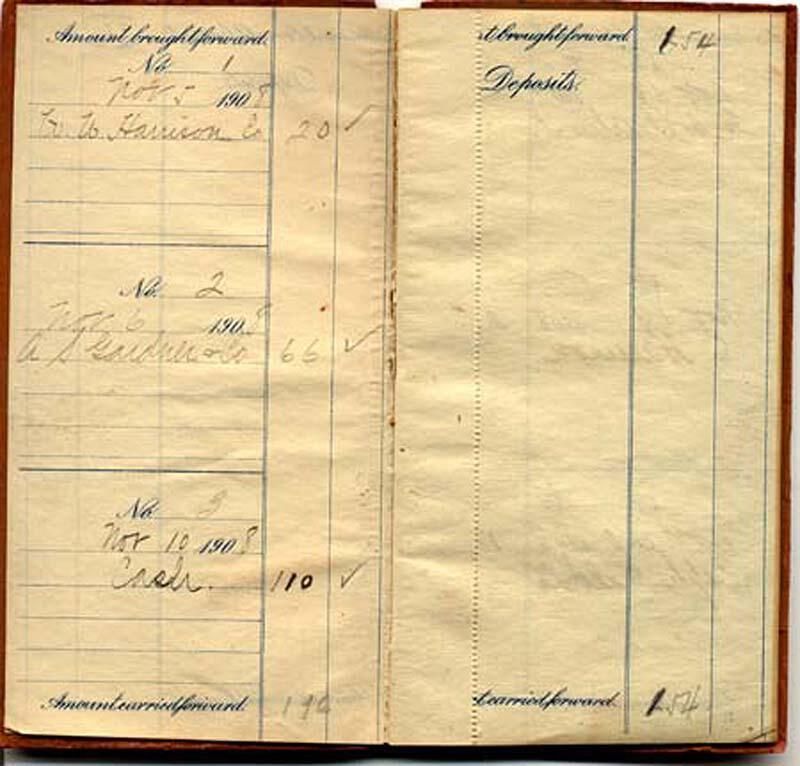 Amount brought forward.
No. 1
Nov 5 1908
Harrison Co 20 ✓
No. 2
Nov 6 1908
A S Gardner & Co 66 ✓
No. 3
Nov 10 1908
Cash. 110 ✓
Amount carried forward. 196
t brought forward. 154
Deposits.
t carried forward. 154